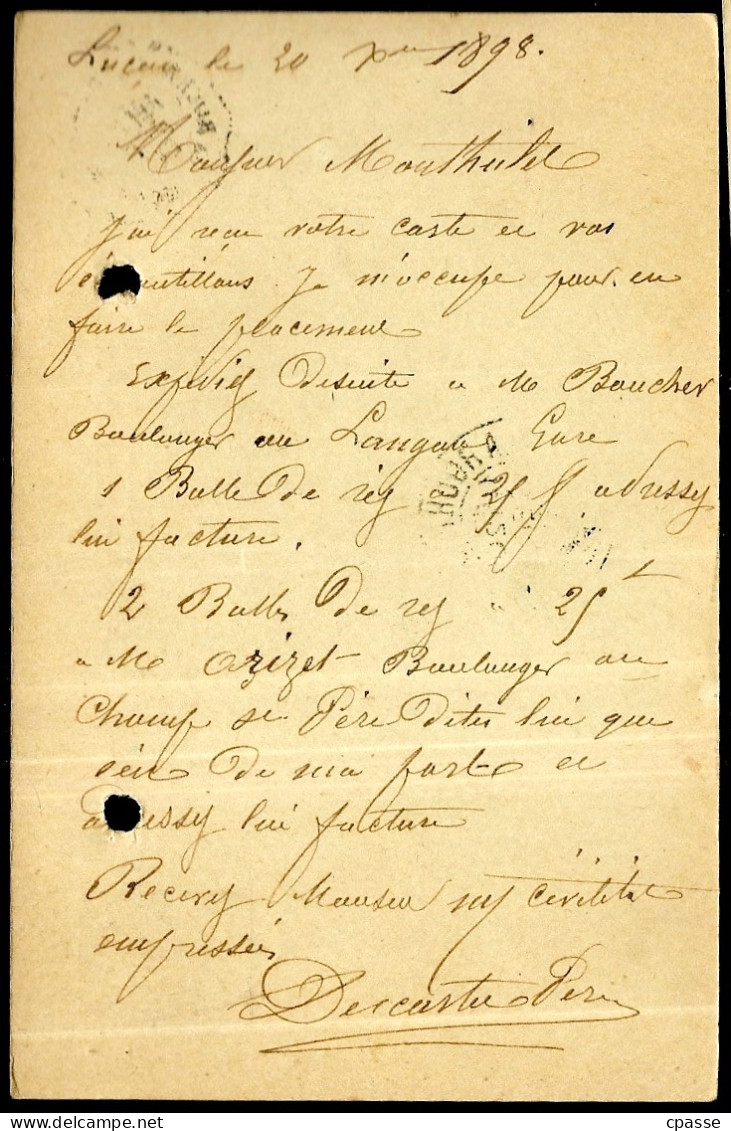 Luçon le 20 Xbre 1898.
Monsieur Monthulet
J'ai reçu votre carte et vos
é ntillons Je m'occupe pour en
faire le placement
Expédiez desuite a M Boucher
Boulanger au Langon Gare
1 Balle de rez adressez
lui facture.
2 Balles de rez a 25
a M Grizet Boulanger au
Champ St Père Dites lui que
c'est de ma part et
a essez lui facture
Recevez Monsieur mes civilités
empressées
Descastre Père
cpasse